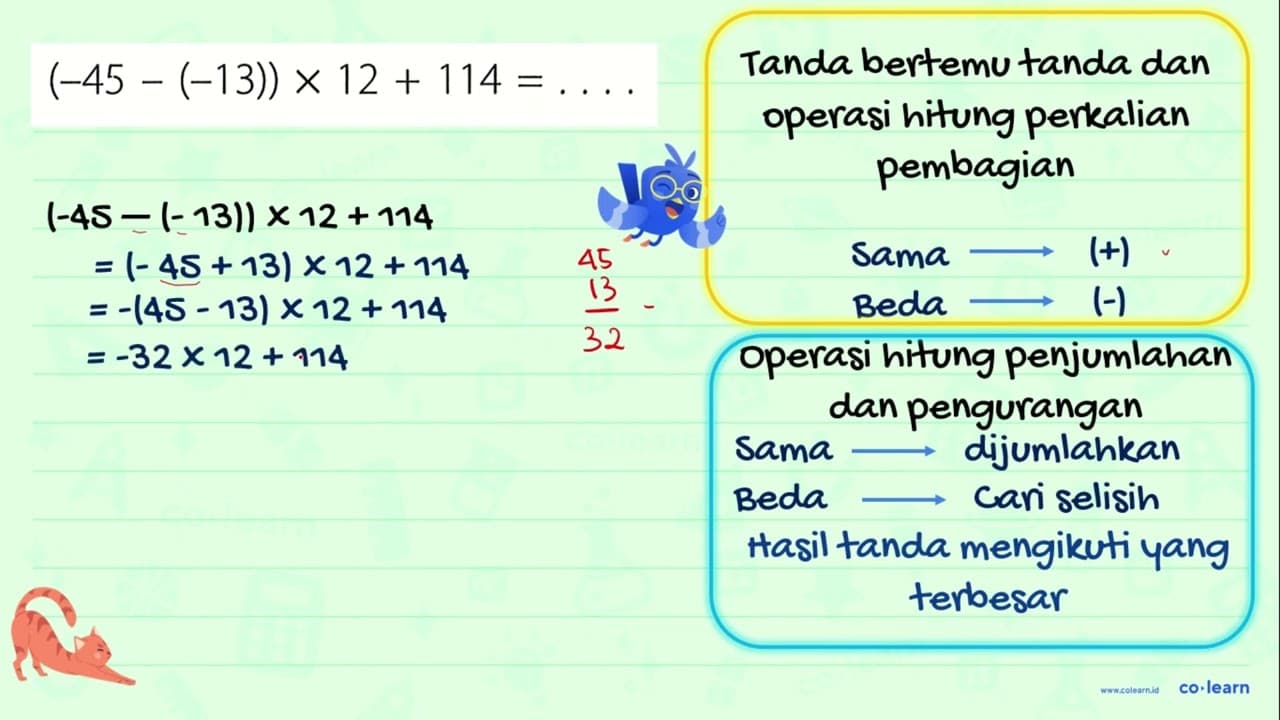 (–45 – (–13)) × 12 + 114 = . . . .
(-45 – (-13)) × 12 + 114
= (-45 + 13) × 12 + 114
= -(45 - 13) × 12 + 114
= -32 × 12 + 114
45
13
-
32
Tanda bertemu tanda dan
operasi hitung perkalian
pembagian
Sama → (+)
Beda → (-)
Operasi hitung penjumlahan
dan pengurangan
Sama → dijumlahkan
Beda → Cari selisih
Hasil tanda mengikuti yang
terbesar
www.colearn.id co·learn